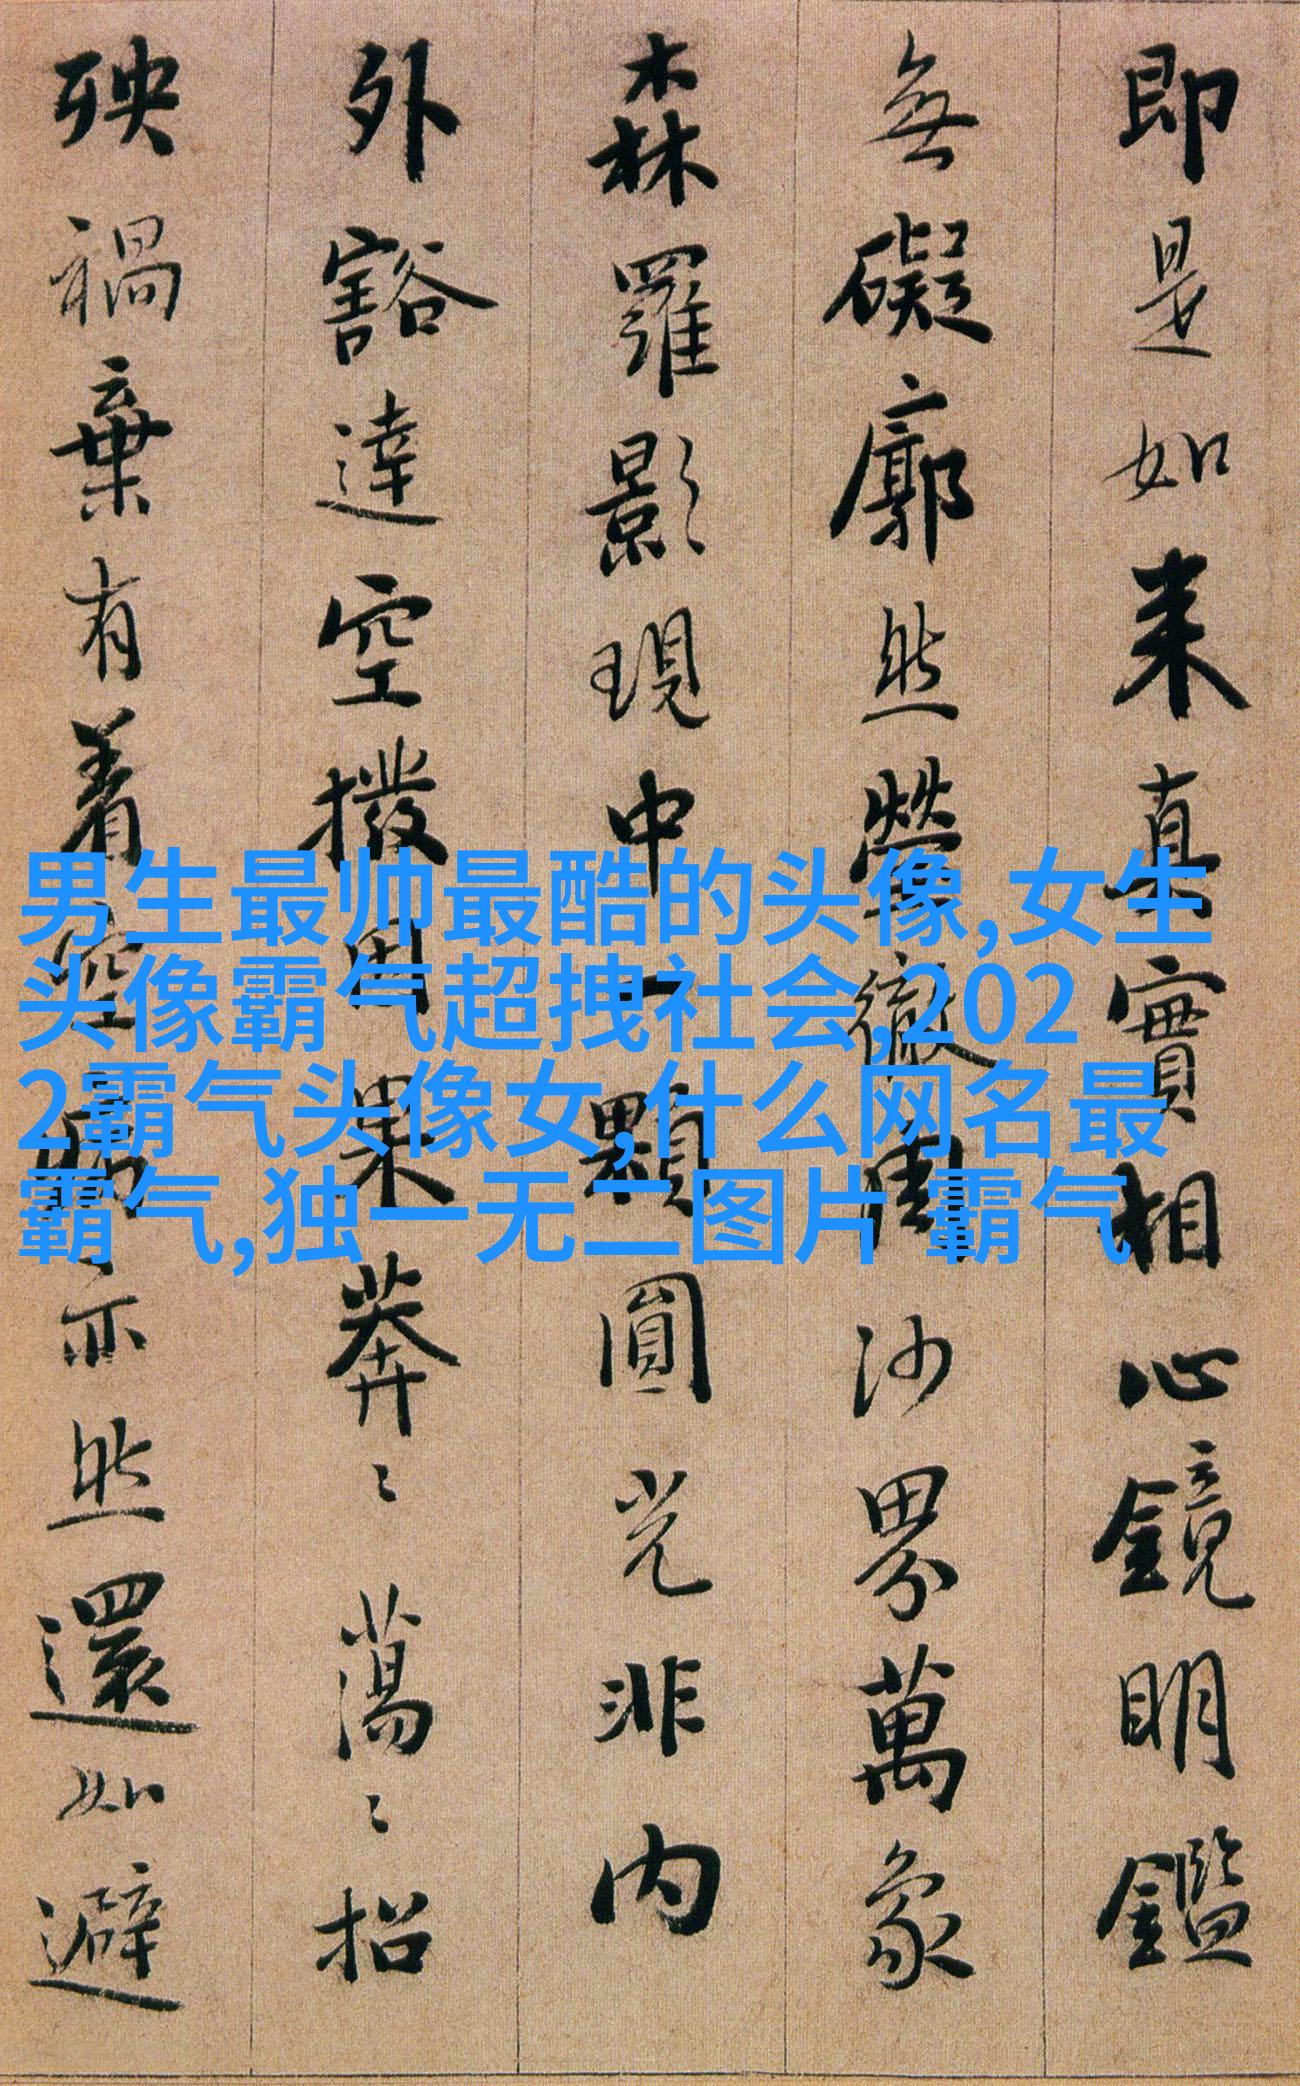 即是如来真實相心鏡明鑑
無礙廓然瑩徹周沙界萬象
森羅影現中一顆圓光非内
外豁達空撥因果莽〻蕩〻招
殃禍棄有着空病亦然還如避
男生最帅最酷的头像,女生
头像霸气超拽社会,202
2霸气头像女,什么网名最
霸气,独一无二图片 霸气